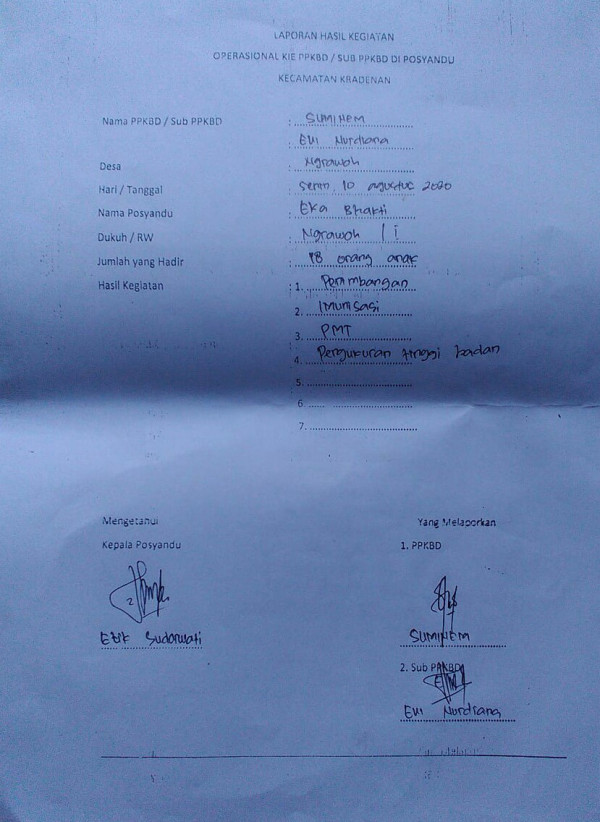 LAPORAN HASIL KEGIATAN
OPERASIONAL KIE PPKBD / SUB PPKBD DI POSYANDU
KECAMATAN KRADENAN
Nama PPKBD / Sub PPKBD : SUMINEM
: Evi Nurdiana
Desa : Ngrawoh
Hari / Tanggal : Senin, 10 agustus 2020
Nama Posyandu : Eka Bhakti
Dukuh / RW : Ngrawoh / I
Jumlah yang Hadir : 18 orang anak
Hasil Kegiatan : 1. Penimbangan
2. Imunisasi
3. PMT
4. Pengukuran tinggi badan
5.
6.
7.
Mengetahui Yang Melaporkan
Kepala Posyandu 1. PPKBD
Etik Sudarwati SUMINEM
2. Sub PPKBD
Evi Nurdiana